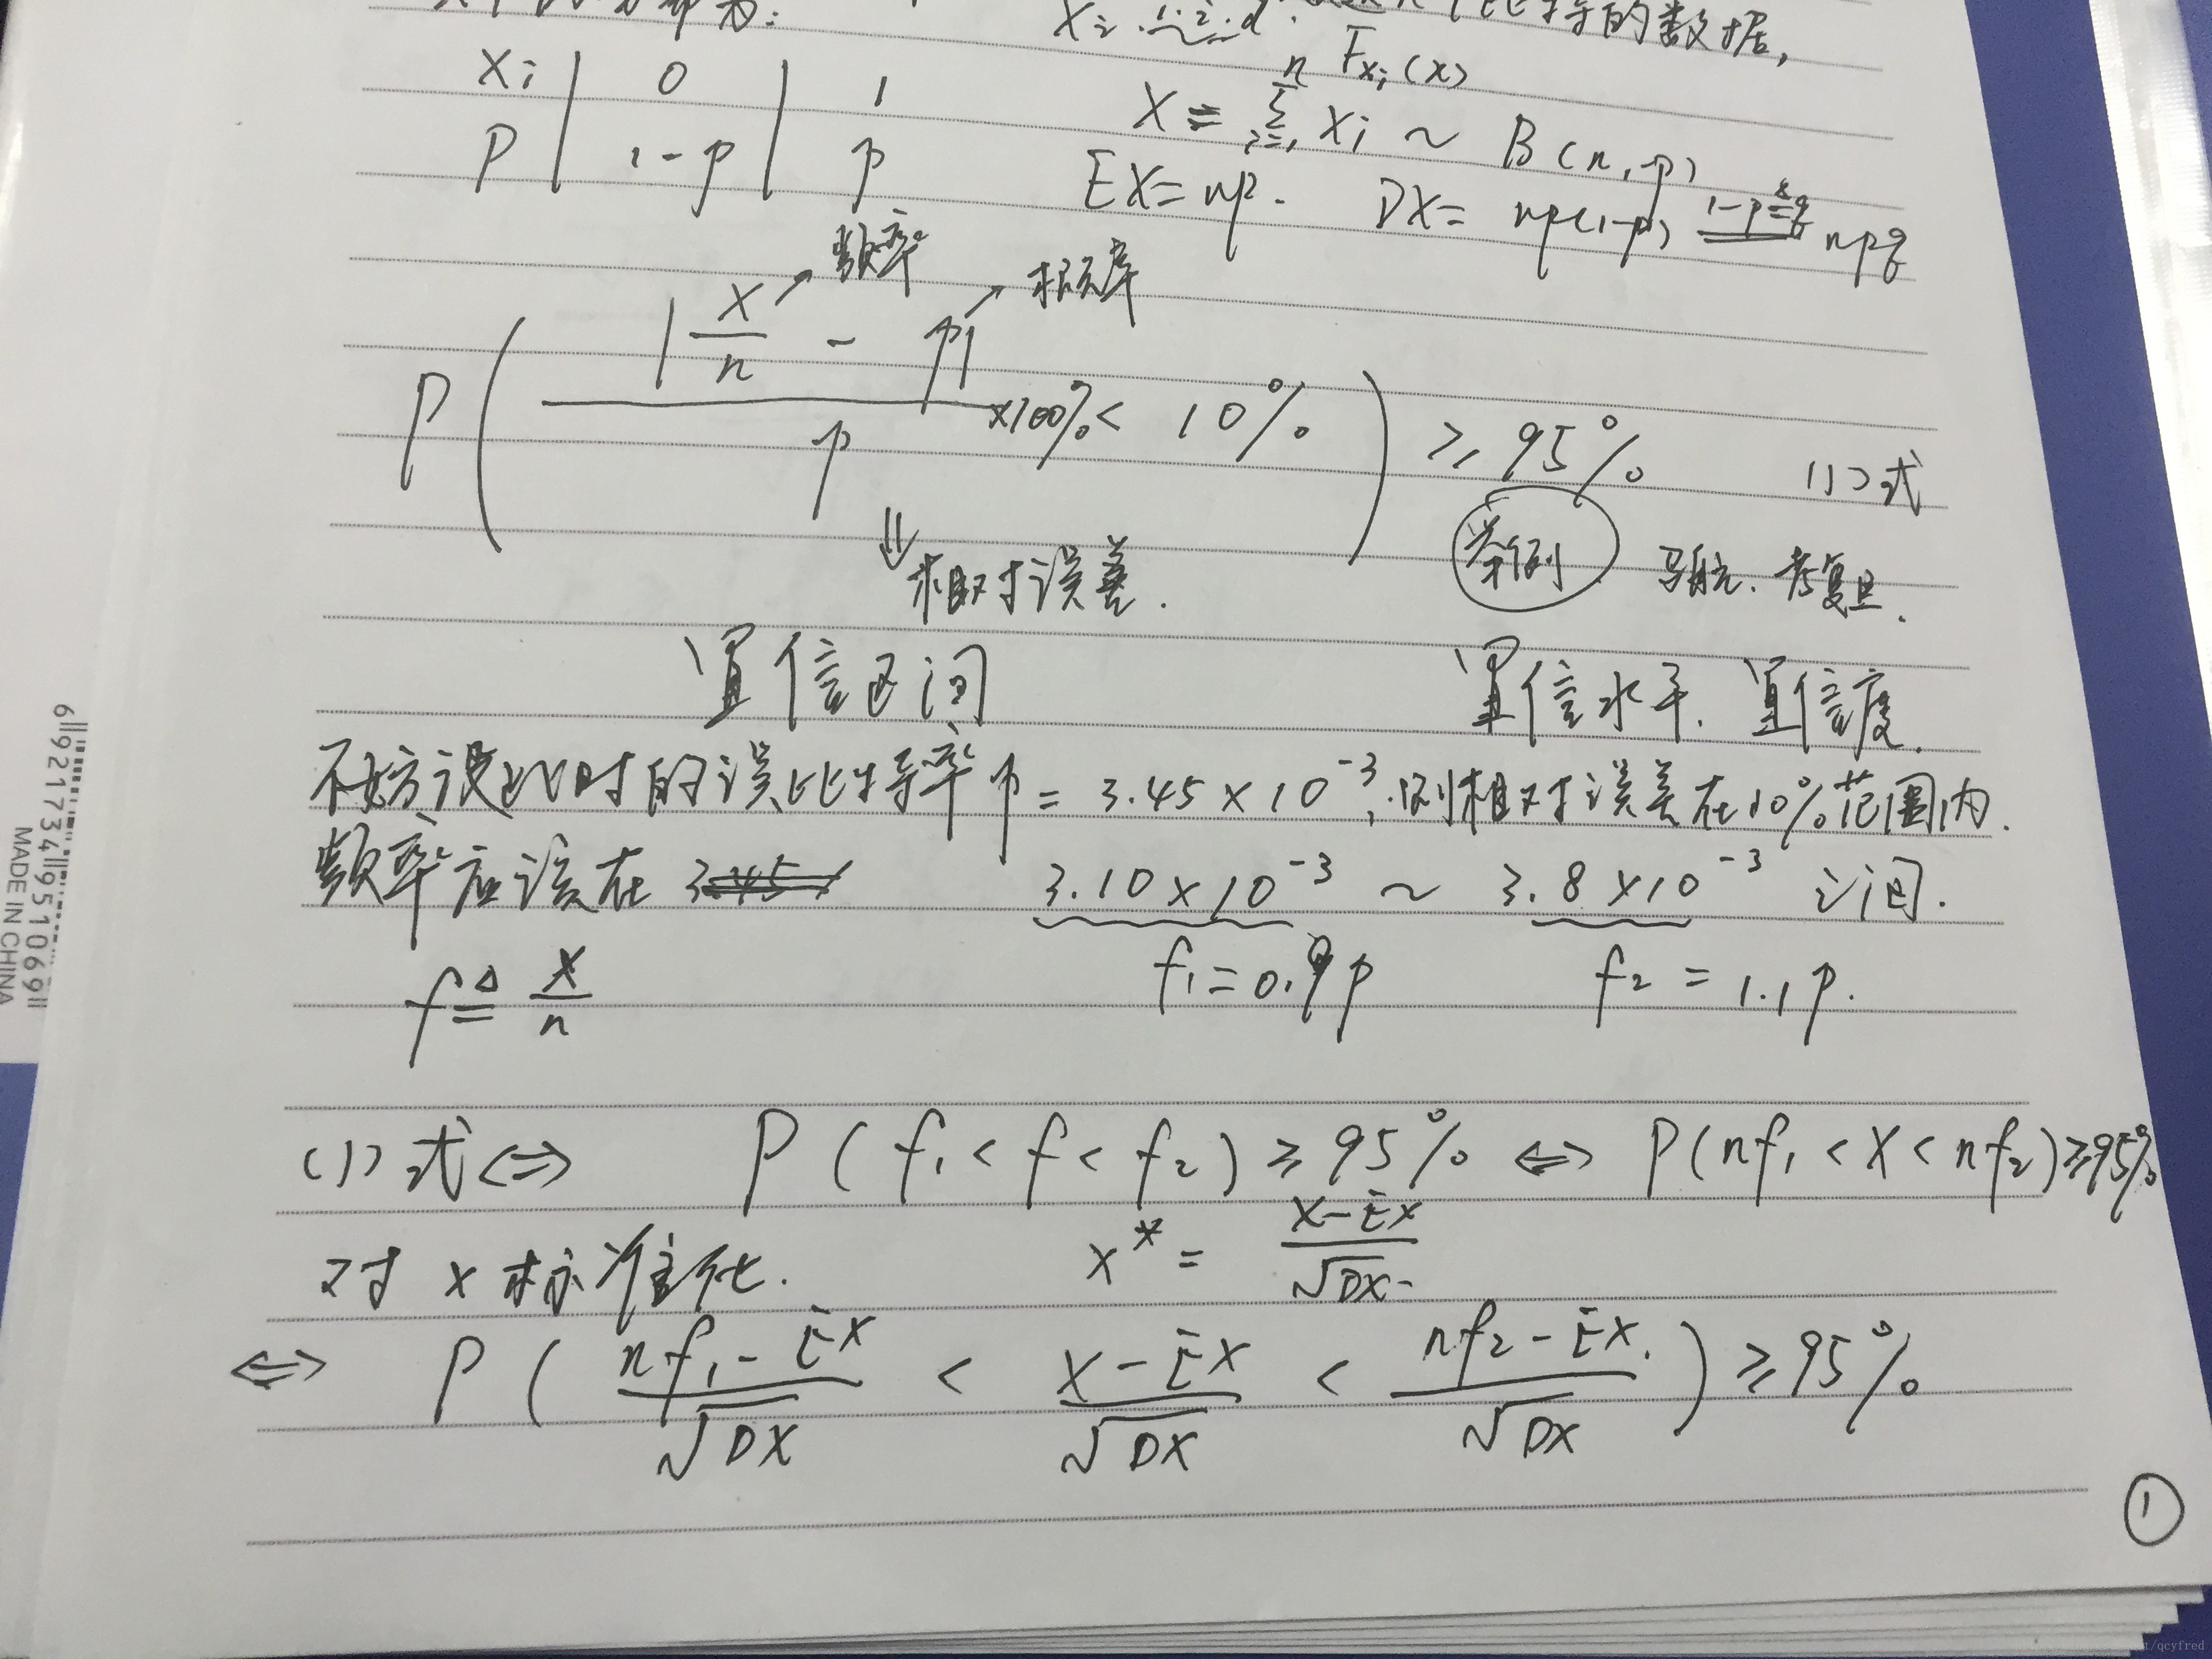 Xi . i.i.d. 比特的数据,
Xi | 0 | 1 F_{Xi}(x)
P | 1-p | p X = \sum_{i=1}^{n} Xi ~ B(n, p)
EX = np. DX = np(1-p) \xlongequal{1-p \triangleq q} npq
频率 概率
P( \frac{|\frac{X}{n} - p|}{p} ×100% < 10% ) ≥ 95% (1)式
⇓ 相对误差. 举例 马航、考复旦.
置信区间 置信水平. 置信度.
不妨设此时的误比特率 p = 3.45×10^{-3}, 则相对误差在10%范围内.
频率应该在 3.10×10^{-3} ~ 3.8×10^{-3} 之间.
f ≜ \frac{X}{n} f₁ = 0.9p f₂ = 1.1p.
(1)式 ⇔ P(f₁ < f < f₂) ≥ 95% ⇔ P(nf₁ < X < nf₂) ≥ 95%
对 X 标准化. X* = \frac{X-EX}{\sqrt{DX}}.
⇔ P( \frac{nf₁-EX}{\sqrt{DX}} < \frac{X-EX}{\sqrt{DX}} < \frac{nf₂-EX}{\sqrt{DX}} ) ≥ 95%
①
6 921734 951069
MADE IN CHINA
/qcyfred